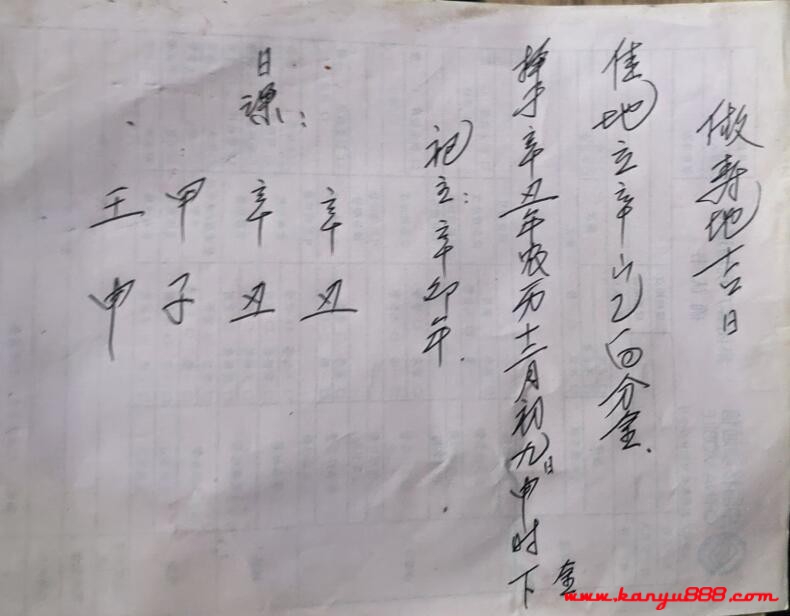 做寿地吉日
佳地立辛山乙向分金.
择于辛丑年农历十二月初九日申时下金
祀主:辛卯年.
日课:
辛丑
辛丑
甲子
壬申
www.kanyu888.com